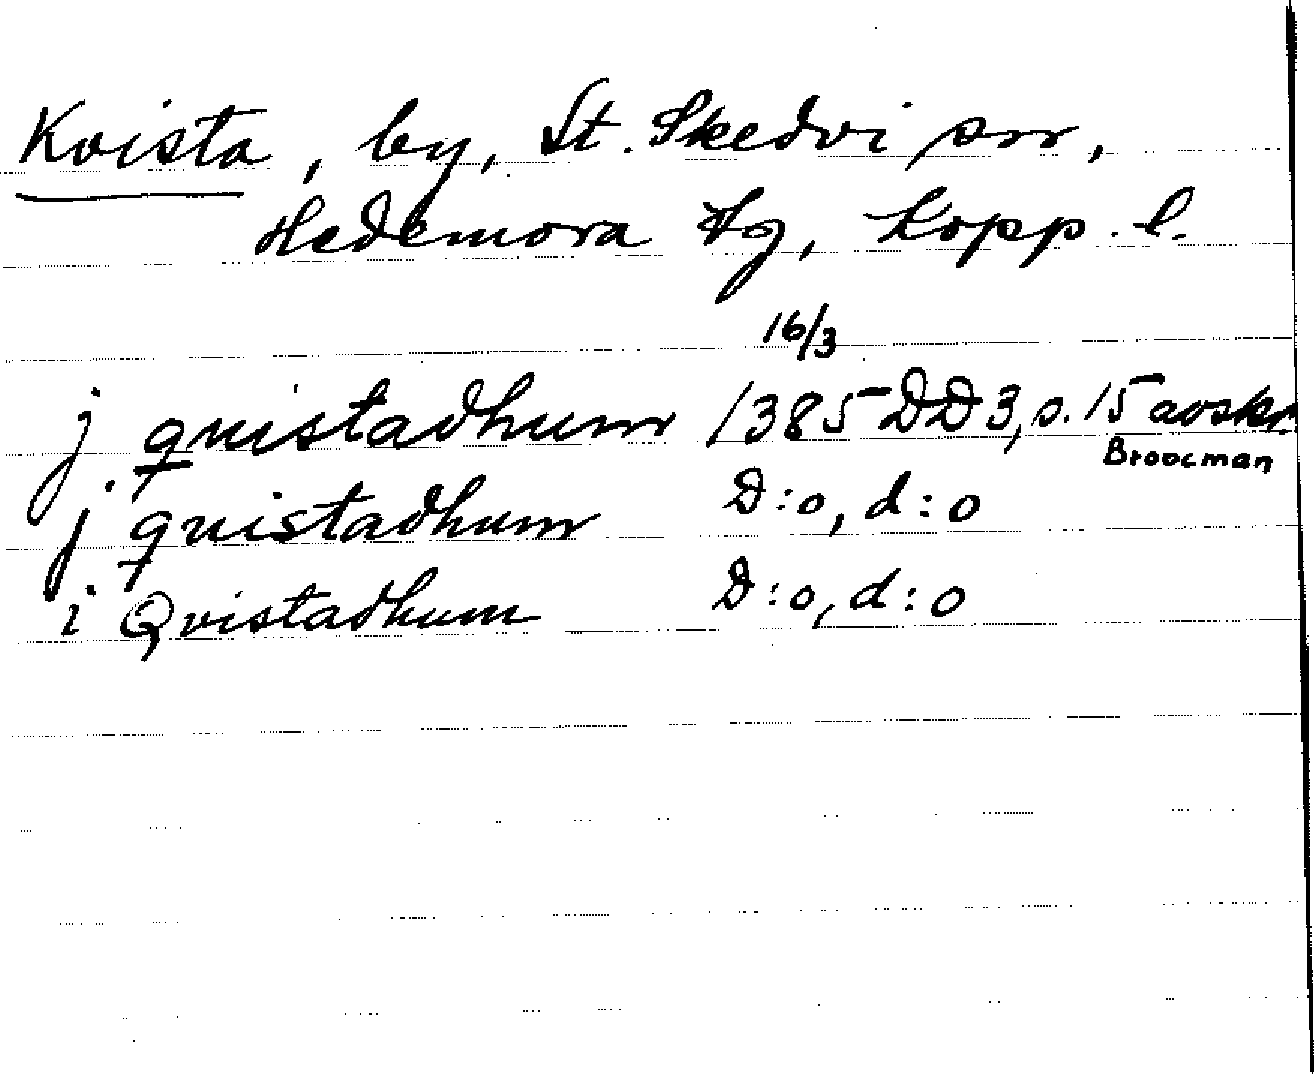 Kvista, by, St. Skedvi sn,
Hedemora tg, Kopp. l.
16/3
j quistadhum 1385 DD 3, s. 15 avskr
Broocman
j quistadhum D:o, d:o
i Qvistadhum D:o, d:o